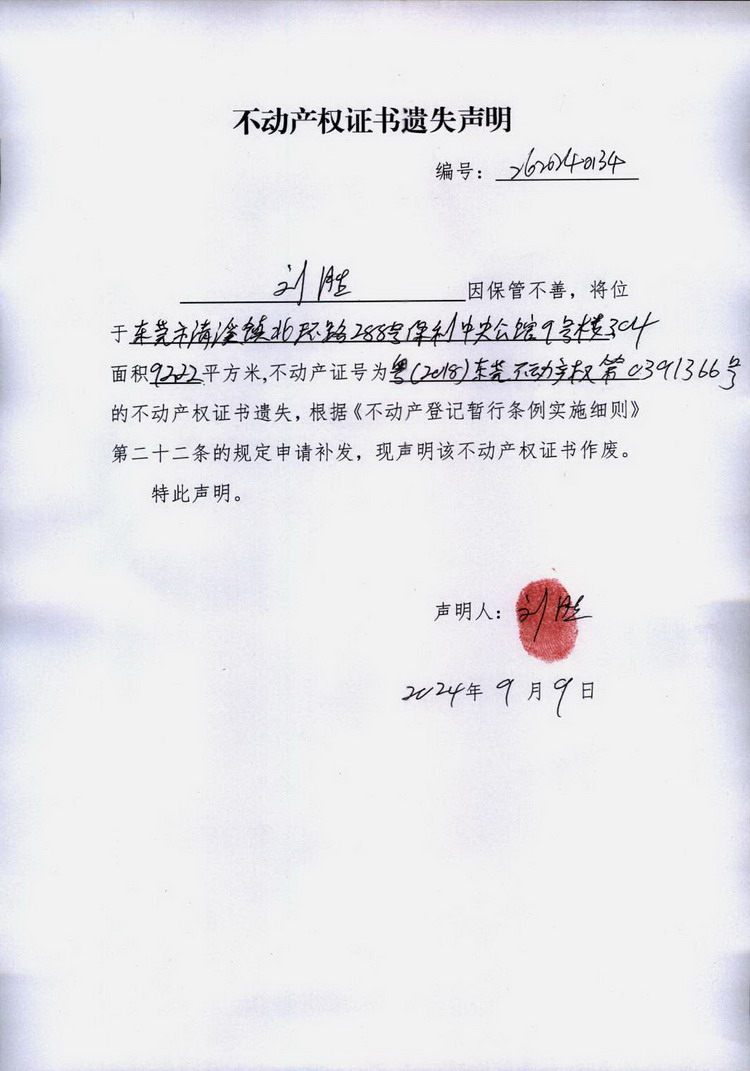 不动产权证书遗失声明
编号：2620240134
刘胜因保管不善，将位
于东莞市清溪镇北环路288号保利中央公馆9号楼304
面积92.22平方米,不动产证号为粤(2018)东莞不动产权第0391366号
的不动产权证书遗失，根据《不动产登记暂行条例实施细则》
第二十二条的规定申请补发，现声明该不动产权证书作废。
特此声明。
声明人：刘胜
2024年9月9日